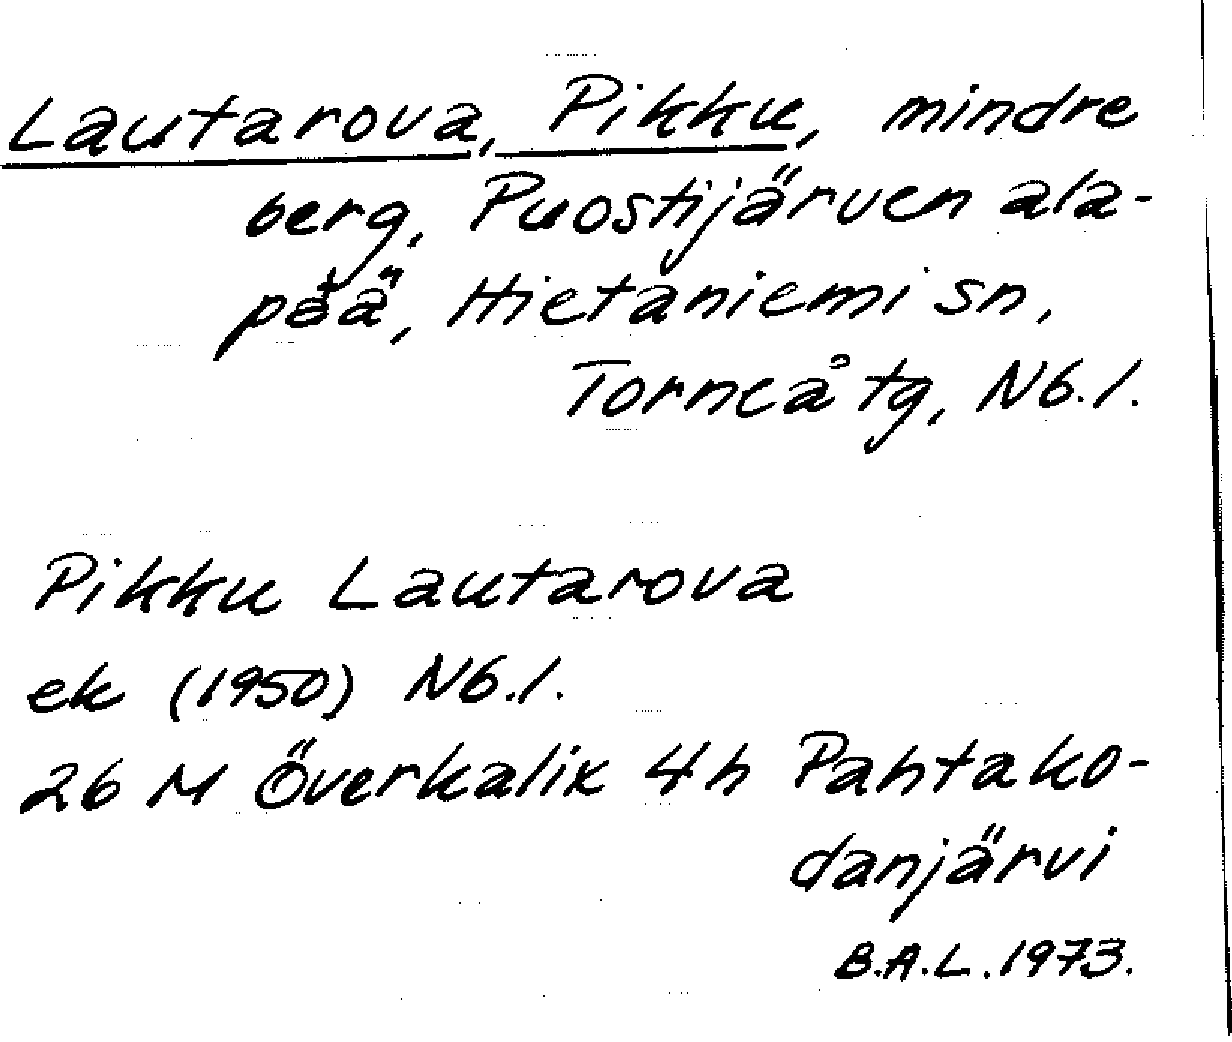 Lautarova, Pikku, mindre
berg, Puostijärven ala-
pää, Hietaniemi sn,
Torneå tg, N6.1.
Pikku Lautarova
ek (1950) N6.1.
26 M Överkalix 4h Pahtako-
danjärvi
B.A.L. 1973.